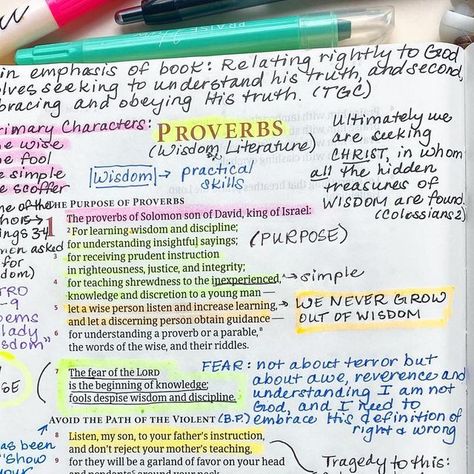 PRAISE
in emphasis of book: Relating rightly to God
olves seeking to understand his truth, and second,
bracing and obeying His truth. (TGC)
rimary Characters:
he wise
he fool
e simple
e scoffer
PROVERBS
(Wisdom Literature)
Wisdom → practical
skills
Ultimately we
are seeking
CHRIST, in whom
all the hidden
treasures of
WISDOM are found.
(Colossians 2)
THE PURPOSE OF PROVERBS
1 The proverbs of Solomon son of David, king of Israel:
2 For learning wisdom and discipline;
for understanding insightful sayings;
(PURPOSE)
3 for receiving prudent instruction
in righteousness, justice, and integrity;
4 for teaching shrewdness to the inexperienced, → simple
knowledge and discretion to a young man —
5 let a wise person listen and increase learning,
and let a discerning person obtain guidance —
→ WE NEVER GROW
OUT OF WISDOM
6 for understanding a proverb or a parable,
the words of the wise, and their riddles.
7 The fear of the LORD
is the beginning of knowledge;
fools despise wisdom and discipline.
FEAR: not about terror but
about awe, reverence and
understanding I am not
God, and I need to
embrace His definition of
right & wrong
(B.P.)
AVOID THE PATH OF THE VIOLENT
8 Listen, my son, to your father's instruction,
and don't reject your mother's teaching,
9 for they will be a garland of favor on your head
Tragedy to this:
ne of the
ings 3-4
men asked
for
dom)
TRO
-9
oems
lady
sdom"
SE
as been
"Show
your